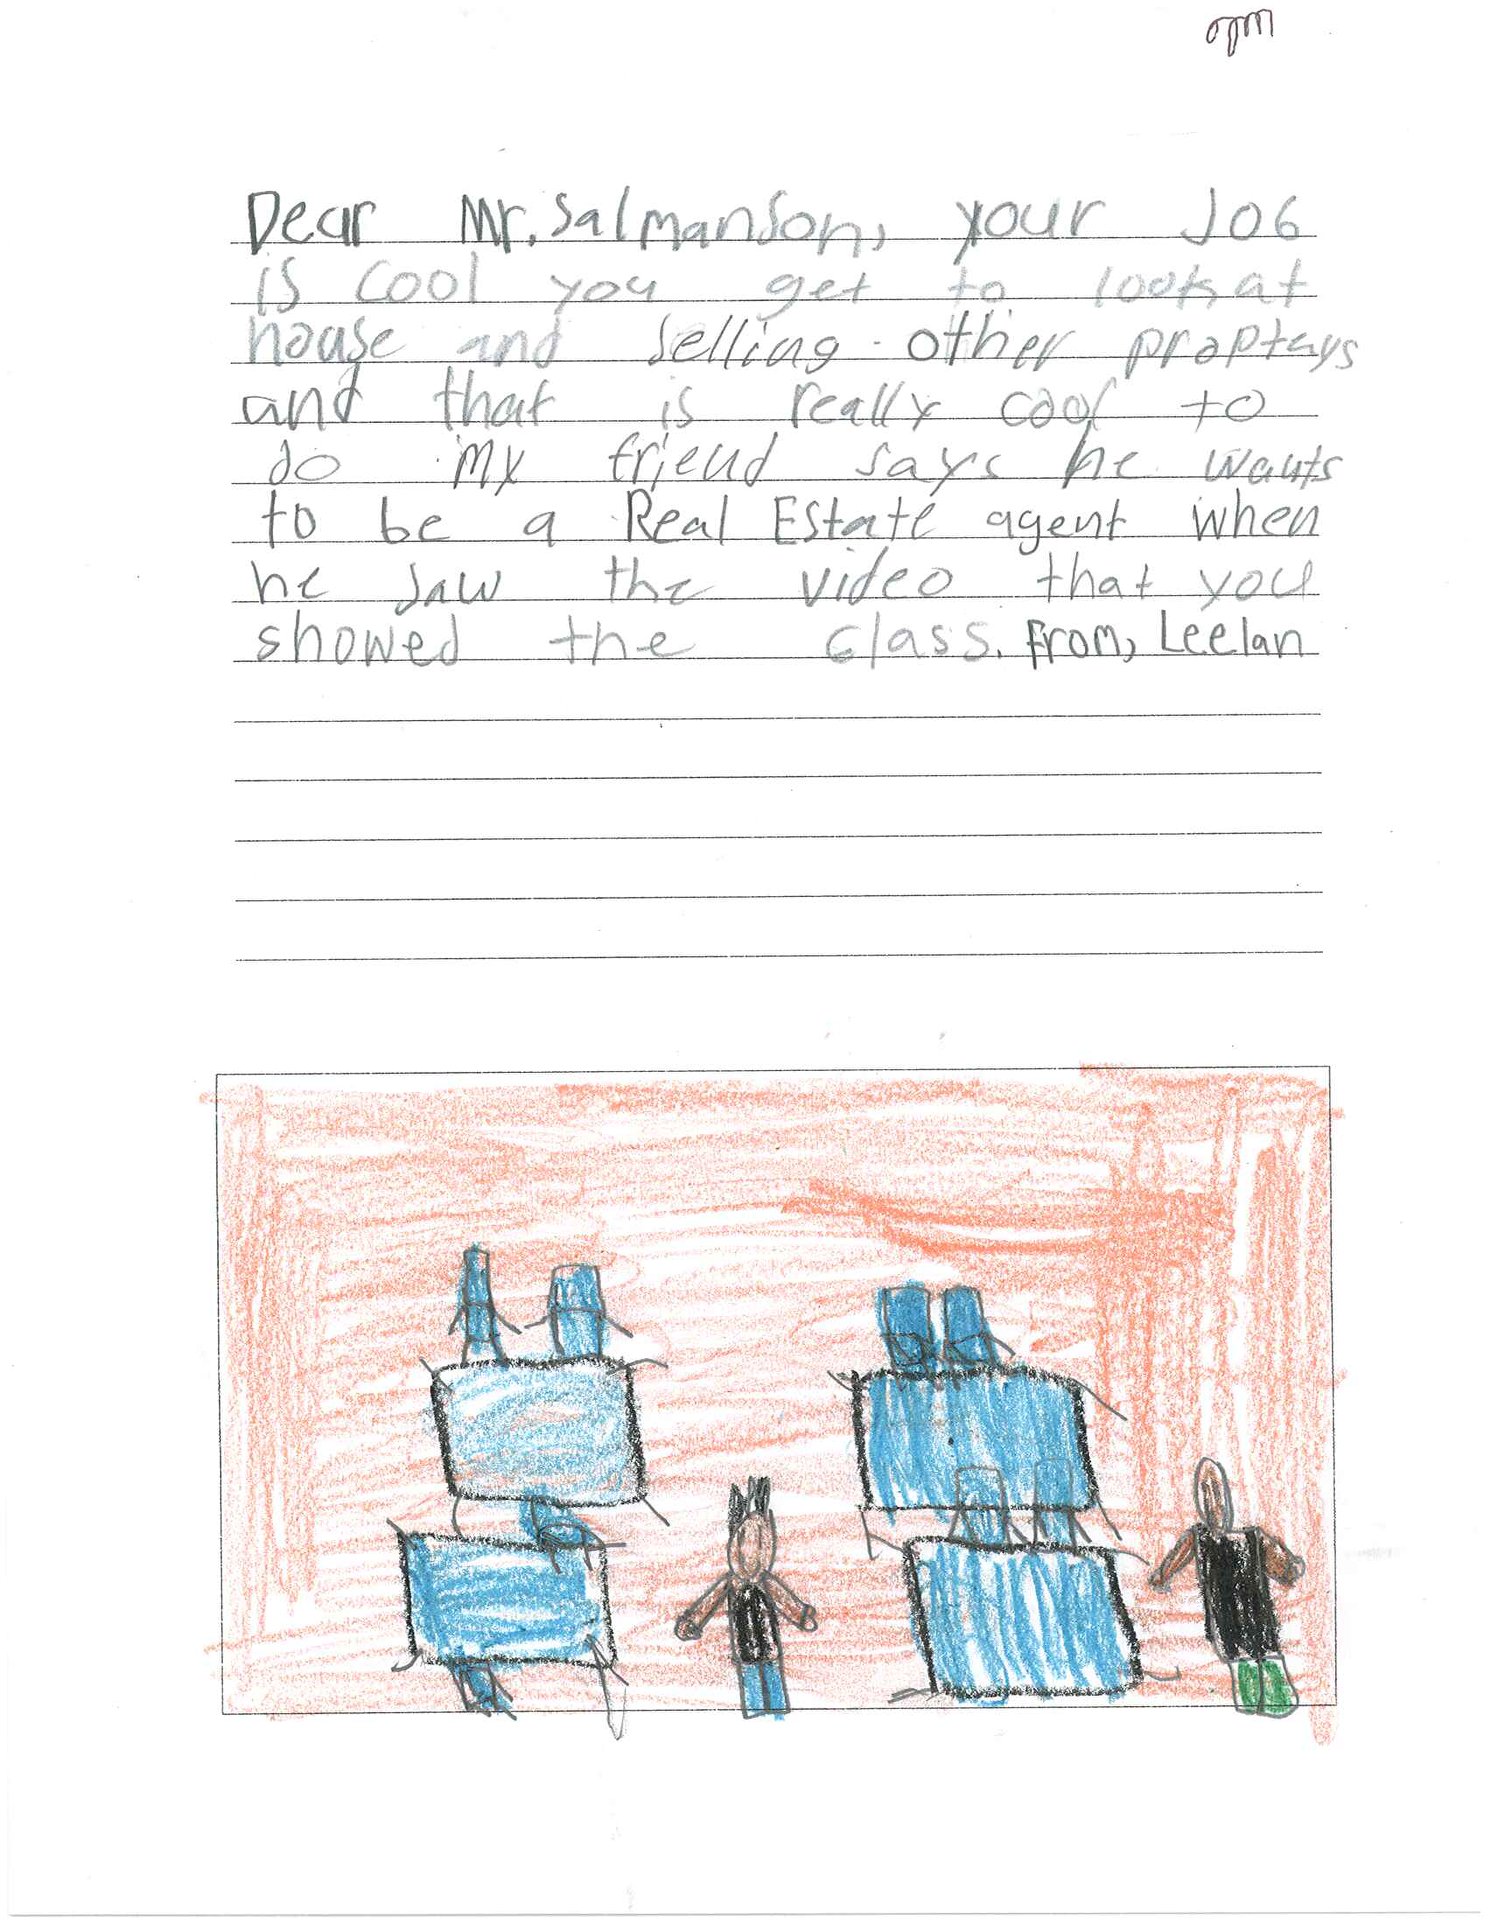 Dear Mr. Salmanson, your Job
is cool you get to look at
house and selling other proptays
and that is really cool to
do my friend says he wants
to be a Real Estate agent when
he saw the video that you
showed the class. From, Leelan